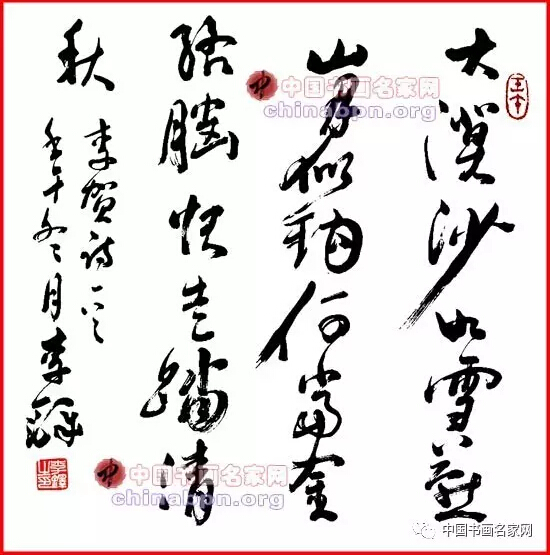 大漠沙如雪燕
山月似钩何當金
络腦快走踏清
秋
李贺诗一首
壬午冬月李鐸
壬午
中国书画名家网
chinabpn.org
中国书画名家网
chinabpn.org
中国书画名家网